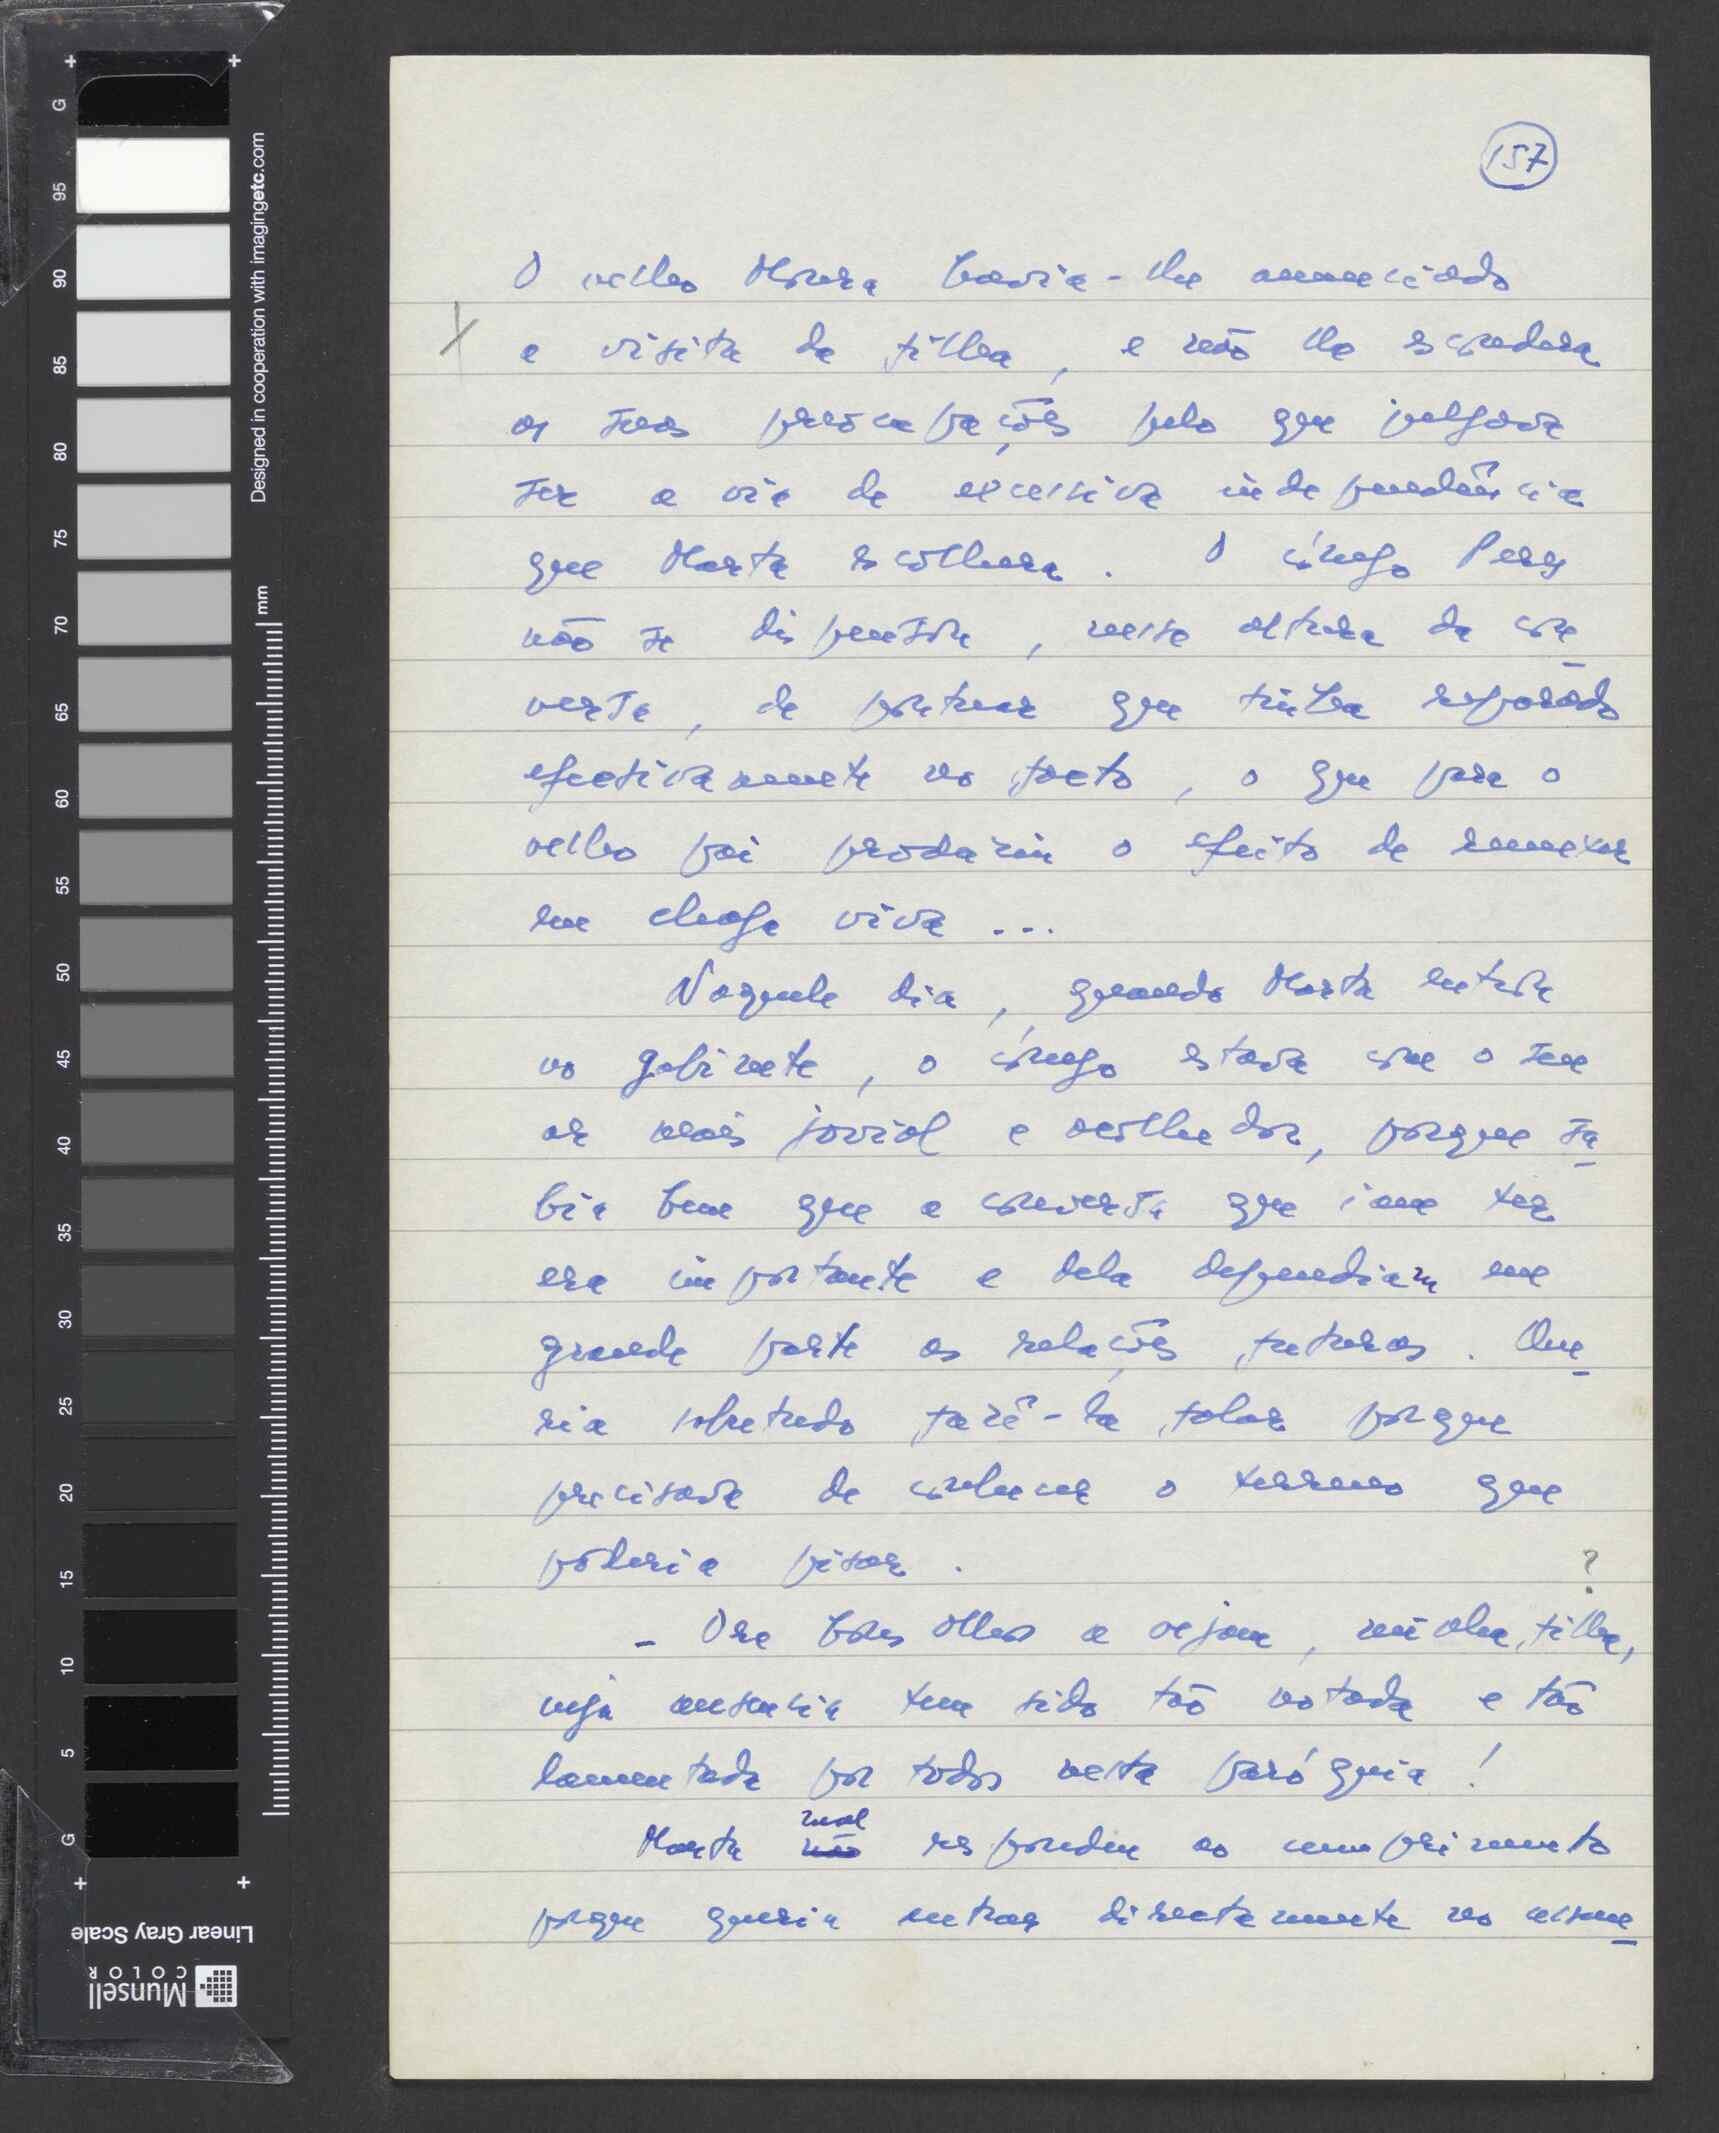 157
O velho Moura havia-lhe anunciado
a visita da filha, e não lhe escondera
as suas preocupações pelo que julgava
ser a via de excessiva independência
que Marta escolhera. O cónego Peres
não se dispensou, nessa altura da con
versa, de pontuar que tinha reparado
efectivamente no facto, o que para o
velho pai produziu o efeito de remexer
em chaga viva...
Naquele dia, quando Marta entrou
no gabinete, o cónego estava com o seu
ar mais jovial e acolhedor, porque sa
bia bem que a conversa que iam ter
era importante e dela dependiam em
grande parte as relações futuras. Que
ria sobretudo fazê-la falar porque
precisava de conhecer o terreno que
poderia pisar.
?
- Ora bons olhos a vejam, minha filha,
cuja ausência tem sido tão notada e tão
lamentada por todos nesta paróquia!
mal
Marta não respondeu ao cumprimento
porque queria entrar directamente no assun
Designed in cooperation with imagingetc.com
mm
G
95
90
85
80
75
70
65
60
55
50
45
40
35
30
25
20
15
10
5
G
Linear Gray Scale
Munsell
COLOR